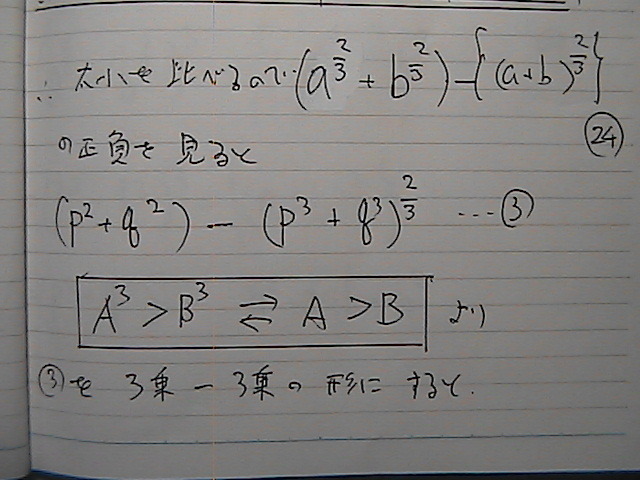 ∴ 大小を比べるので (a^{2/3} + b^{2/3}) - {(a+b)^{2/3}}
㉔
の正負を見ると
(p^2 + q^2) - (p^3 + q^3)^{2/3} … ③
A^3 > B^3 ⇄ A > B より
③を 3乗 - 3乗の形にすると.